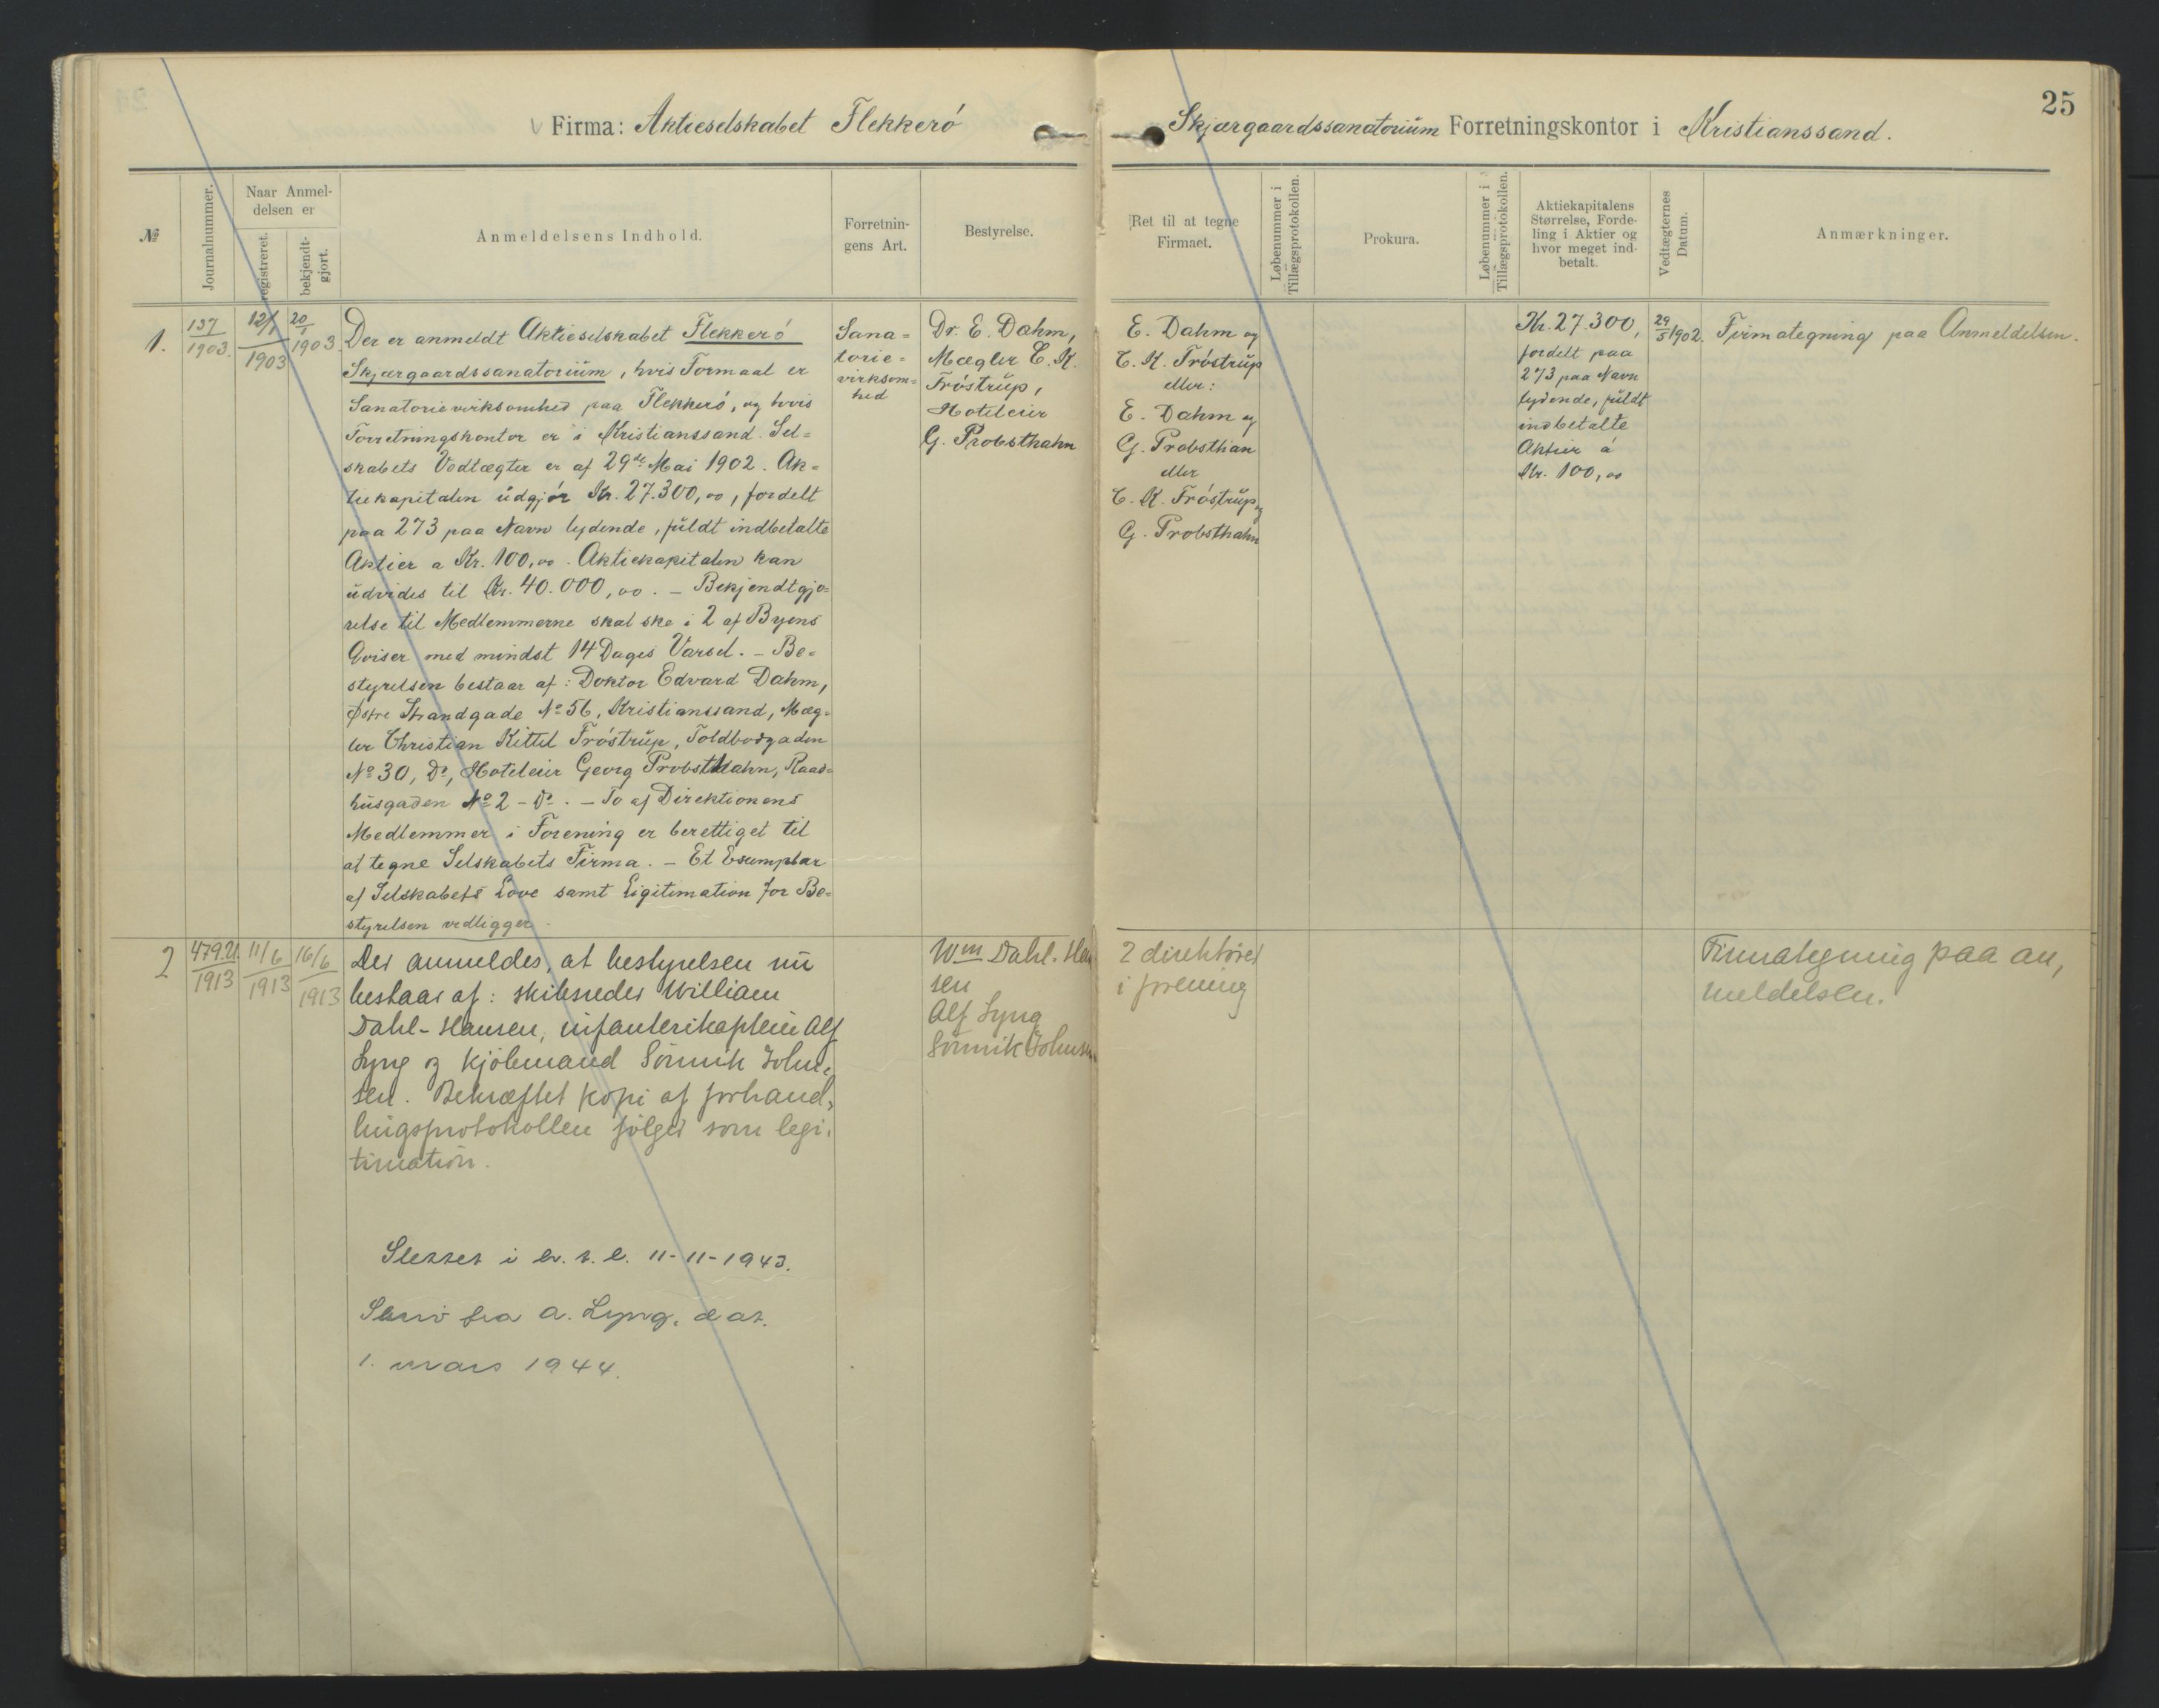 25
Firma: Aktieselskabet Flekkerö
Skjærgaardssanatorium Forretningskontor i Kristianssand.
№
Journalnummer.
Naar Anmel-
delsen er
registreret.
bekjendt-
gjort.
Anmeldelsens Indhold.
Forretnin-
gens Art.
Bestyrelse.
Ret til at tegne
Firmaet.
Løbenummer i
Tillægsprotokollen.
Prokura.
Løbenummer i
Tillægsprotokollen.
Aktiekapitalens
Størrelse, Forde-
ling i Aktier og
hvor meget ind-
betalt.
Vedtægternes
Datum.
Anmærkninger.
1.
137
1903.
12/1
1903
20/1
1903.
Der er anmeldt Aktieselskabet Flekkerö
Skjærgaardssanatorium, hvis Formaal er
Sanatorievirksomhed paa Flekkerö, og hvis
Forretningskontor er i Kristianssand. Sel=
skabets Vedtægter er af 29de Mai 1902. Ak=
tiekapitalen udgjör Kr. 27.300,00, fordelt
paa 273 paa Navn lydende, fuldt indbetalte
Aktier a Kr. 100,00. Aktiekapitalen kan
udvides til Kr. 40.000,00. – Bekjendtgjö=
relse til Medlemmerne skal ske i 2 af Byens
Aviser med mindst 14 Dages Varsel. – Be=
styrelsen bestaar af: Doktor Edvard Dahm,
Østre Strandgade No 56, Kristianssand, Mæg=
ler Christian Kittel Fröstrup, Toldbodgaden
No 30, Do, Hoteleier Georg Probsthahn, Raad=
husgaden No 2 – Do. – To af Direktionens
Medlemmer i Forening er berettiget til
at tegne Selskabets Firma. – Et Exemplar
af Selskabets Love samt Legitimation for Be=
styrelsen vedligger.
Sana=
torie=
virksom=
hed
Dr. E. Dahm,
Mægler C. K.
Fröstrup,
Hoteleier
G. Probsthahn
E. Dahm og
C. K. Fröstrup
eller:
E. Dahm og
G. Probsthan
eller
C. K. Fröstrup og
G. Probsthahn
Kr. 27.300,
fordelt paa
273 paa Navn
lydende, fuldt
indbetalte
Aktier á
Kr. 100,00
29/5 1902.
Firmategning paa Anmeldelsen.
2
479.21.
1913
11/6
1913
16/6
1913
Der anmeldes, at bestyrelsen nu
bestaar af: skibsreder William
Dahl-Hansen, infanterikaptein Alf
Lyng og kjöbmand Sönnik John,
sen. Bekræftet kopi af forhand,
lingsprotokollen fölger som legi,
timation.
Wm Dahl-Han
sen
Alf Lyng
Sönnik Johnsen
2 direktörer
i forening
Firmategning paa an,
meldelsen.
Slettet i h. t. l. 11-11-1943.
Skriv fra A. Lyng, dat.
1. mars 1944.